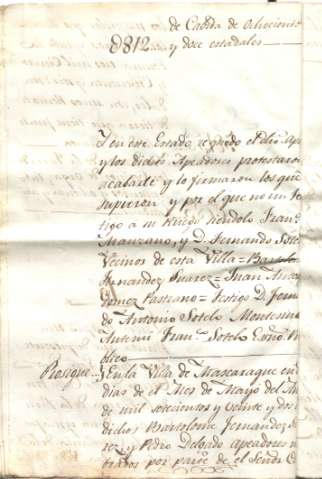 de Cabida de ochociento
@812 y doze estadales
Y en este Estado
y los dichos Apeadores protestaron
acabarle y lo firmaron los que
supieron y por el que no un tes
tigo a su Ruego siendolo Fran.co
Manzano, y D. Fernando Sote
Vecinos de esta Villa = Bartolo
Fernandez Juarez = Juan
Gomez Pastrano = testigo D. Ferna
do Antonio Sotelo Montesino
Antemi Fran.co Sotelo Essno. Pu
blico
Prosegue En la Villa de Mascaraque en
dias de el Mes de Mayo del Añ
de mil setecientos y veinte y dos
dichos Bartolome Fernandez
rez y Pedro Delgado apeadores
brados por parte de el Señor